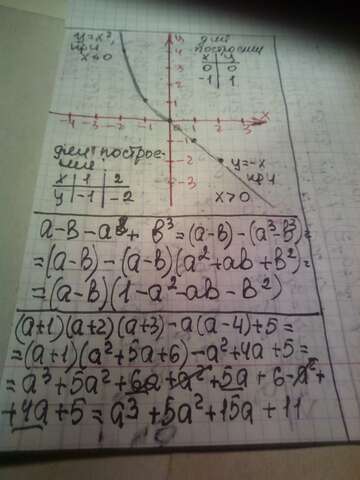 y=x², при x≤0
для построения
x y
0 0
-1 1
y
4
3
2
1
-4 -3 -2 -1 0 1 2 3 x
-2
-3
y=-x при x>0
для построения
x 1 2
y -1 -2
a-b-a³+b³=(a-b)-(a³-b³)=
=(a-b)-(a-b)(a²+ab+b²)=
=(a-b)(1-a²-ab-b²)
(a+1)(a+2)(a+3)-a(a-4)+5=
=(a+1)(a²+5a+6)-a²+4a+5=
=a³+5a²+6a+a²+5a+6-a²+
+4a+5=a³+5a²+15a+11